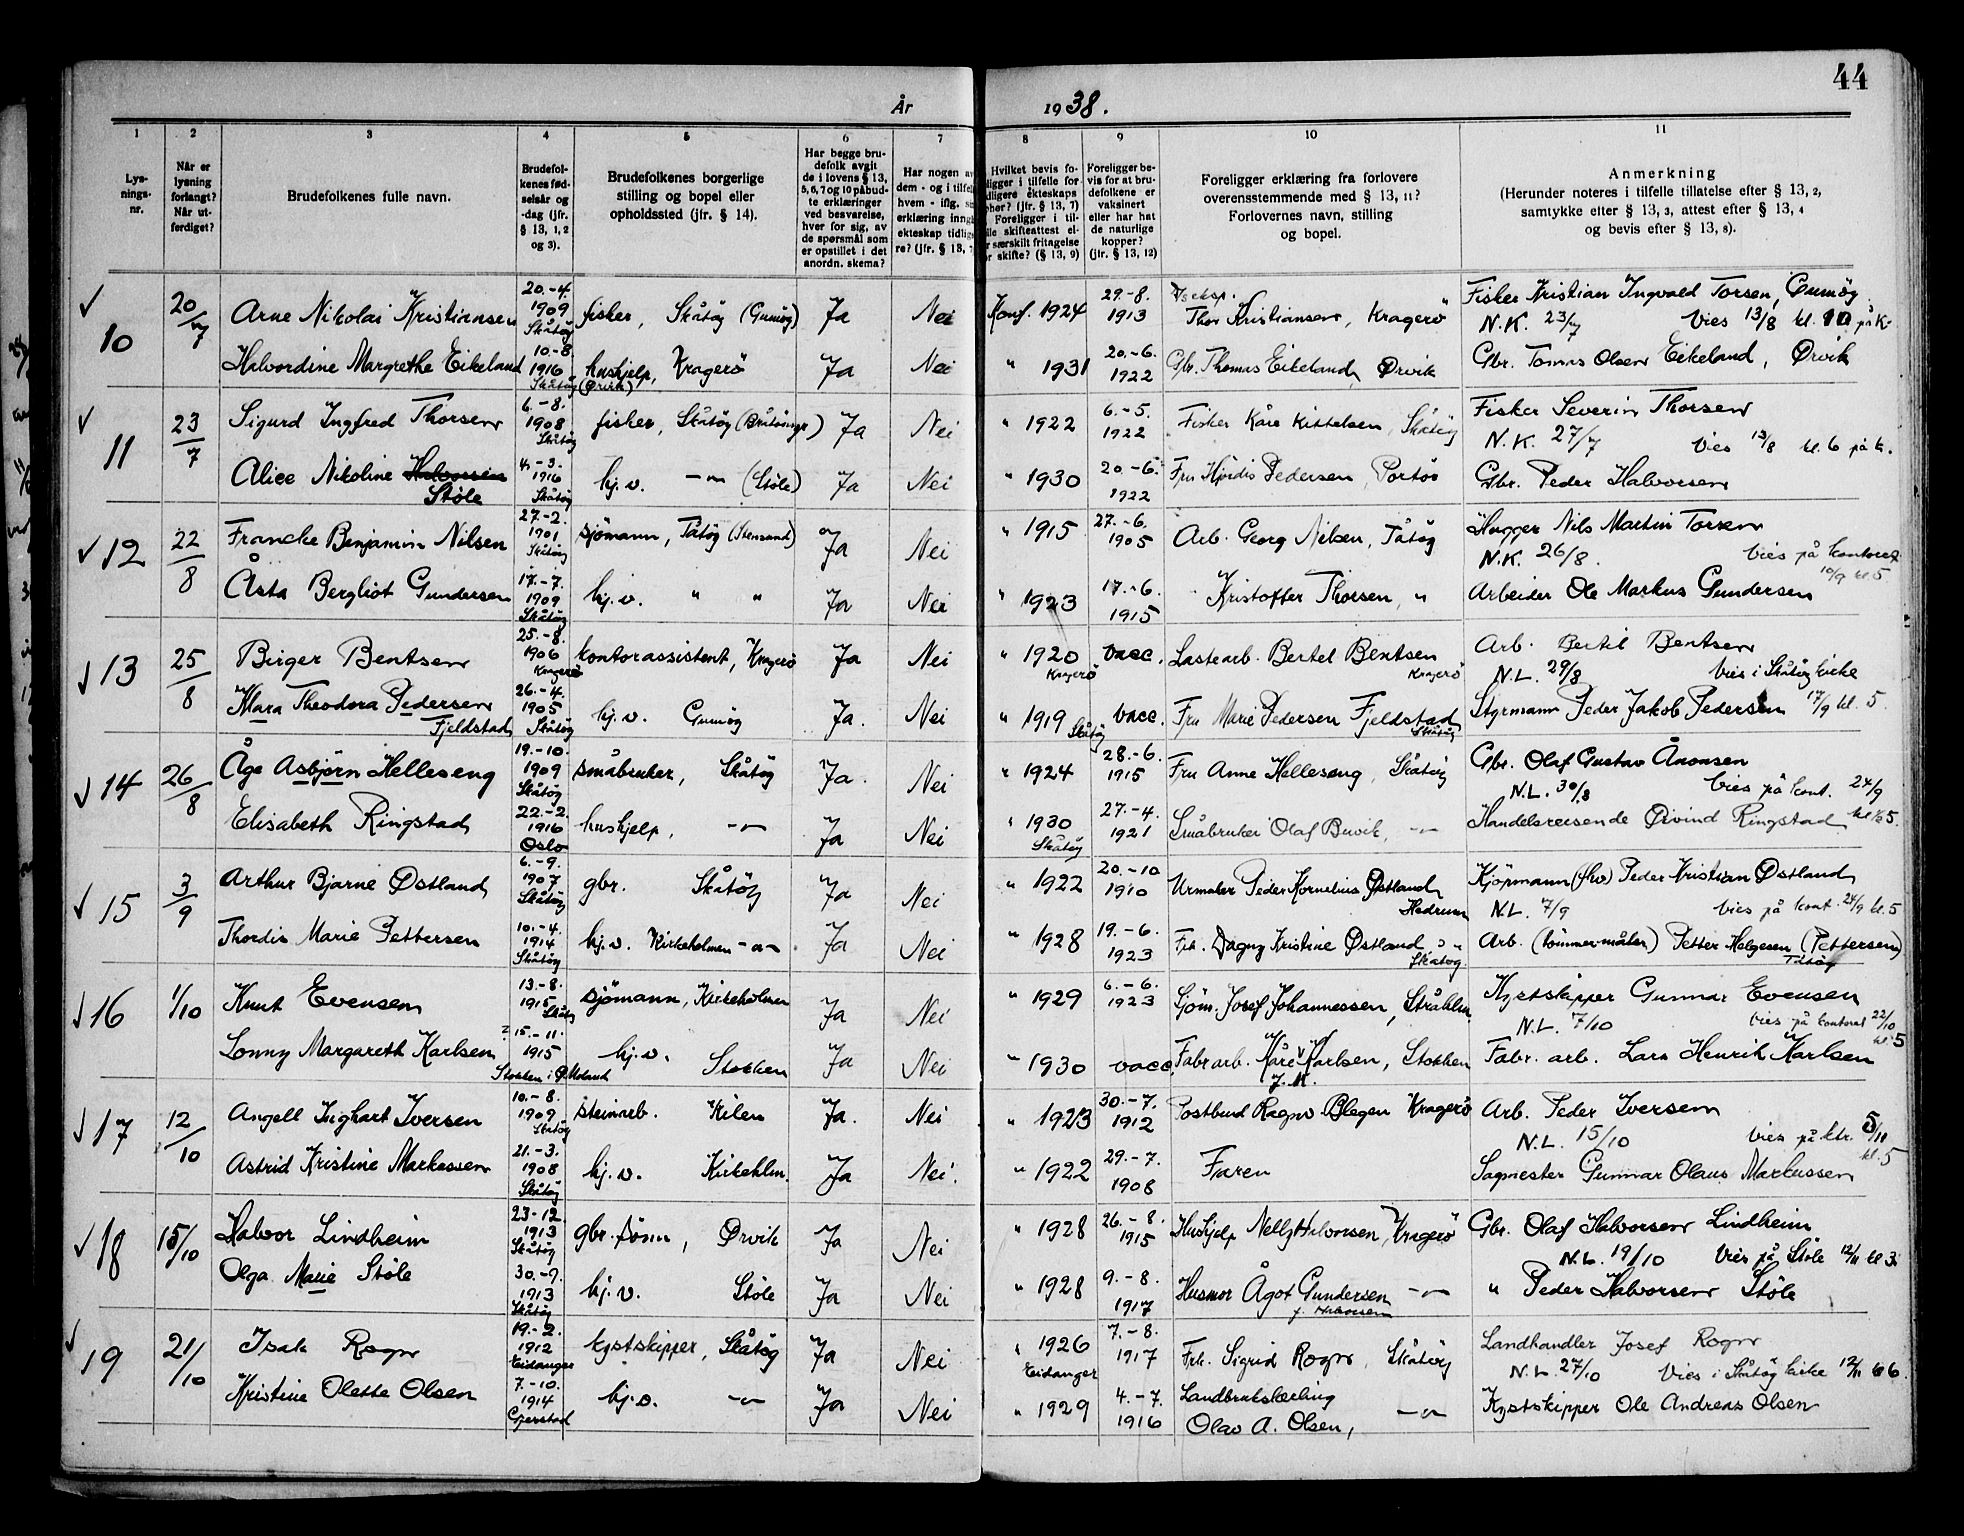 44
År 1938.
1 2 3 4 5 6 7 8 9 10 11
Lys-
nings-
nr.
Når er
lysning
forlangt?
Når ut-
ferdiget?
Brudefolkenes fulle navn.
Brudefol-
kenes fød-
selsår og
-dag (jfr.
§ 13, 1, 2
og 3).
Brudefolkenes borgerlige
stilling og bopel eller
opholdssted (jfr. § 14).
Har begge bru-
defolk avgit
de i lovens § 13,
5, 6, 7 og 10 påbud-
te erklæringer
ved besvarelse,
hver for sig, av
de spørsmål som
er opstillet i det
anordn. skema?
Har nogen av
dem - og i tilfel
hvem - iflg.
erklæring inng
ekteskap tidlig
re? (jfr. § 13, 7
Hvilket bevis fo-
ligger i tilfelle for
dligere ekteskaps
phør? (jfr. § 13, 7)
Foreligger i til-
lle skifteattest el-
r særskilt fritagelse
or skifte? (§ 13, 9)
Foreligger be-
vis for at bru-
defolkene er
vaksinert
eller har hat
de naturlige
kopper?
(jfr. § 13, 12)
Foreligger erklæring fra forlovere
overensstemmende med § 13, 11?
Forlovernes navn, stilling
og bopel.
Anmerkning
(Herunder noteres i tilfelle tillatelse efter § 13, 2,
samtykke efter § 13, 3, attest efter § 13, 4
og bevis efter § 13, 8).
✓ 10 20/7 Arne Nikolai Kristiansen 20.-4. 1909 Skåtøy fisker, Skåtøy (Gumøy) Ja Nei Konf. 1924 29.-8. 1913 Thor Kristiansen, Kragerø Fisker Kristian Ingvald Torsen, Gumøy
N.K. 23/7 Vies 13/8 kl. 10 på k.
Halvordine Margrethe Eikeland 10.-8. 1916 Skåtøy hushjelp, Kragerø (Ørvik) Ja Nei " 1931 20.-6. 1922 Gbr. Thomas Eikeland, Ørvik Gbr. Tomas Olsen Eikeland, Ørvik
✓ 11 23/7 Sigurd Ingfred Thorsen 6.-8. 1908 Skåtøy fisker, Skåtøy Ja Nei " 1922 6.-5. 1922 Fisker Kåre Kittelsen, Skåtøy Fisker Severin Thorsen
N.K. 27/7 Vies 13/8 kl. 6 på k.
Alice Nikoline Halvorsen Støle 4.-3. 1916 Skåtøy hj.v. -"- (Støle) Ja Nei " 1930 20.-6. 1922 Fru Hjørdis Pedersen, Portør Gbr. Peder Halvorsen
✓ 12 22/8 Francke Benjamin Nilsen 27.-2. 1901 Skåtøy sjømann, Tåtøy (Stensund) Ja Nei " 1915 27.-6. 1905 Arb. Georg Nilsen, Tåtøy Hugger Nils Martin Torsen
N.K. 26/8. Vies på kontoret 10/9 kl. 5
Åsta Bergliot Gundersen 17.-7. 1909 Skåtøy hj.v. " " Ja Nei " 1923 17.-6. 1915 " Kristoffer Thorsen, " Arbeider Ole Markus Gundersen
✓ 13 25/8 Birger Bentsen 25.-8. 1906 Kragerø kontorassistent, Kragerø Ja Nei " 1920 Kragerø vacc. Lastearb. Bertel Bentsen Kragerø Arb. Bertil Bentsen
N.L. 29/8 Vies i Skåtøy kirke 17/9 kl. 5
Mara Theodora Pedersen Fjeldstad 26.-4. 1905 Skåtøy hj.v. Gumøy Ja. Nei " 1919 Skåtøy vacc. Fru Marie Pedersen Fjeldstad Skåtøy Styrmann Peder Jakob Pedersen
✓ 14 26/8 Åge Asbjørn Helleseng 19.-10. 1909 Skåtøy småbruker, Skåtøy Ja. Nei " 1924 28.-6. 1915 Fru Anne Helleseng, Skåtøy Gbr. Olaf Gustav Ånonsen
N.L. 30/8 Vies på kont. 24/9
Elisabeth Ringstad 22.-2. 1916 Oslo hushjelp, -"- Ja Nei " 1930 Skåtøy 27.-4. 1921 Småbruker Olaf Buvik, -"- Handelsreisende Øivind Ringstad
✓ 15 3/9 Arthur Bjarne Østland 6.-9. 1907 Skåtøy gbr. Skåtøy Ja Nei " 1922 20.-10 1910 Urmaker Peder Kornelius Østland Hedrum Kjøpmann Peder Kristian Østland
N.L. 7/9 Vies på kont. 24/9 kl. 5
Thordis Marie Pettersen 10.-4. 1914 Skåtøy hj.v. Kirkeholmen -"- Ja Nei " 1928 19.-6. 1923 Frk. Dagny Kristine Østland Skåtøy Arb. (tømmermåler) Petter Helgesen (Pettersen) Tåtøy
✓ 16 1/10 Knut Evensen 13.-8. 1915 Skåtøy sjømann, Kirkeholmen Ja Nei " 1929 6.-6. 1923 Sjøm. Josef Johannessen, Stråhlm. Kystskipper Gunnar Evensen
N.L. 7/10 Vies på kontoret 22/10 kl. 5
Lonny Margareth Karlsen 15.-11. 1915 Stokken i Ø. Moland hj.v. Stokken Ja Nei " 1930 vacc. Fabr.arb. Kåre Karlsen, Stokken Fabr. arb. Lars Henrik Karlsen
✓ 17 12/10 Angell Inghart Iversen 10.-8. 1909 Skåtøy steinarb. Kilen Ja. Nei " 1923 30.-7. 1912 Postbud Ragnv. Blegen Kragerø Arb. Peder Iversen
N.L. 15/10 Vies på ktr. 5/11 kl. 5
Astrid Kristine Markussen 21.-3. 1908 Skåtøy hj.v. Kirkehlm. Ja Nei. " 1922 29.-7. 1908 Faren Sagmester Gunnar Olaus Markussen
✓ 18 15/10 Halvor Lindheim 23-12. 1913 Skåtøy gbr. sønn, Ørvik Ja Nei " 1928 26.-8. 1915 Hushjelp Nelly Halvorsen, Kragerø Gbr. Olaf Halvorsen Lindheim
N.L. 19/10 Vies på Støle 12/11 kl 3
Olga Marie Støle 30.-9. 1913 Skåtøy hj.v. Støle Ja Nei " 1928 9.-8. 1917 Husmor Ågot Gundersen f. Halvorsen -"- " Peder Halvorsen Støle
✓ 19 21/10 Isak Rogn 19.-2. 1912 Eidanger kystskipper, Skåtøy Ja Nei " 1926 Eidanger 7.-8. 1917 Frk. Sigrid Rogn, Skåtøy Landhandler Josef Rogn
N.L. 27/10 Vies i Skåtøy kirke 12/11 kl 6.
Kristine Olette Olsen 7.-10. 1914 Gjerstad hj.v. -"- Ja Nei " 1929 4.-7. 1916 Landbrukslærling Olav A. Olsen, -"- Kystskipper Ole Andreas Olsen